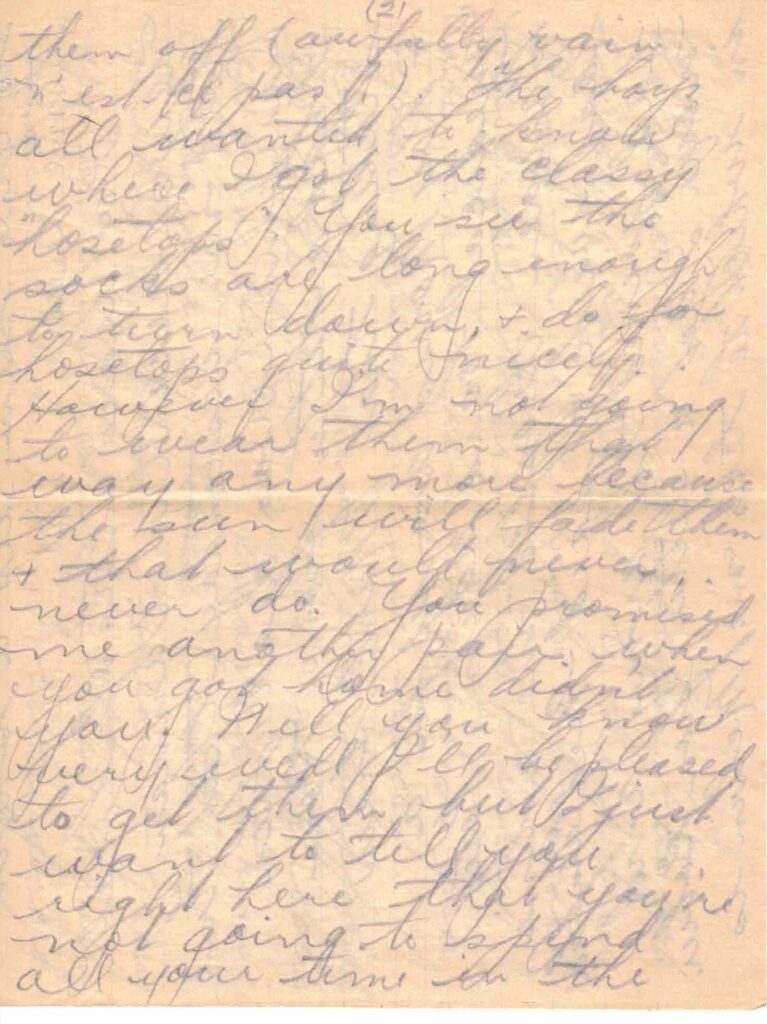 (2)
them off (awfully vain
n'est ce pas!). The boys
all wanted to know
where I got the classy
"hosetops". You see the
socks are long enough
to turn down, + do for
hosetops quite nicely.
However I'm not going
to wear them that
way any more because
the sun will fade them
+ that would never,
never do. You promised
me another pair when
you got home didn't
you. Well you know
very well I'll be pleased
to get them but I just
want to tell you
right here that you're
not going to spend
all your time in the